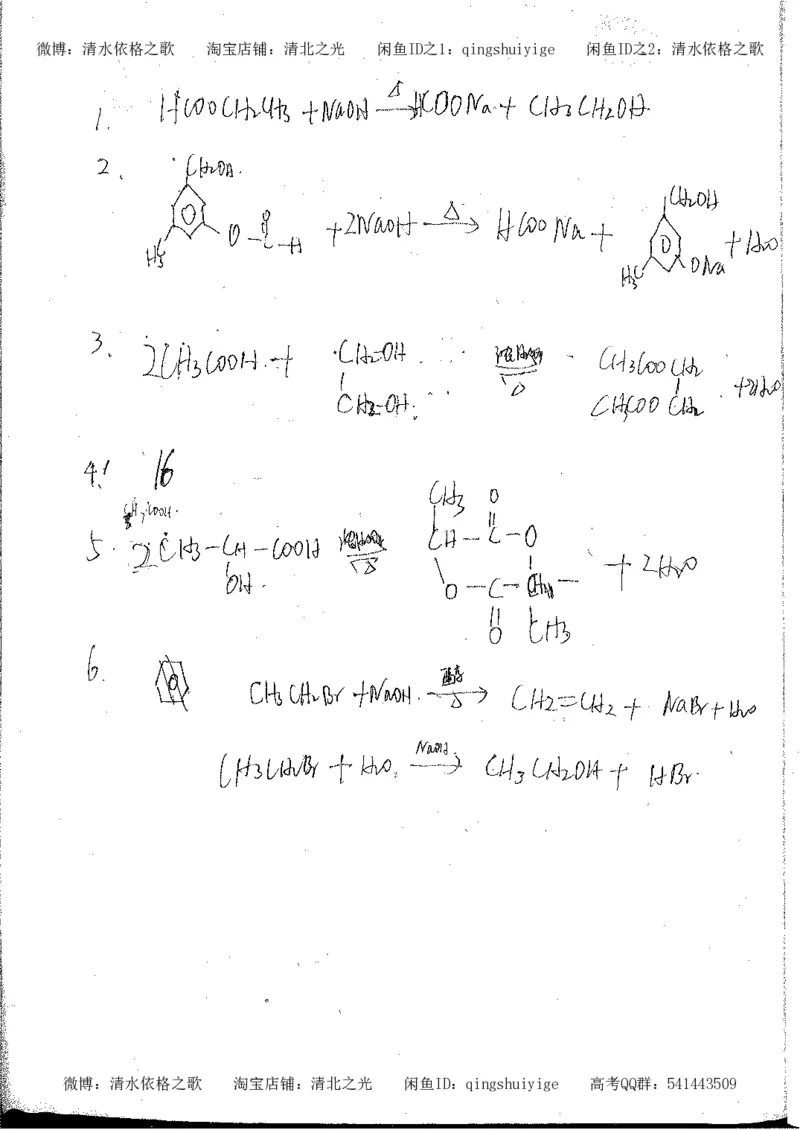 微博：清水依格之歌 淘宝店铺：清北之光 闲鱼ID之1：qingshuiyige 闲鱼ID之2：清水依格之歌
1. HCOOCH2CH3 + NaOH —Δ→ HCOONa + CH3CH2OH
2. CH2OH
H3C O-C-H O + 2NaOH —Δ→ HCOONa + CH2OH H3C ONa + H2O
3. 2CH3COOH + CH2-OH CH2-OH 浓H2SO4 Δ CH3COOCH2 CH3COOCH2 + 2H2O
4. 16
CH3COOH
5. 2CH3-CH-COOH OH 浓H2SO4 Δ CH3 O CH-C-O O-C- O CH3 + 2H2O
6. CH3CH2Br + NaOH —醇 Δ→ CH2=CH2 + NaBr + H2O
CH3CH2Br + H2O —NaOH→ CH3CH2OH + HBr
微博：清水依格之歌 淘宝店铺：清北之光 闲鱼ID：qingshuiyige 高考QQ群：541443509